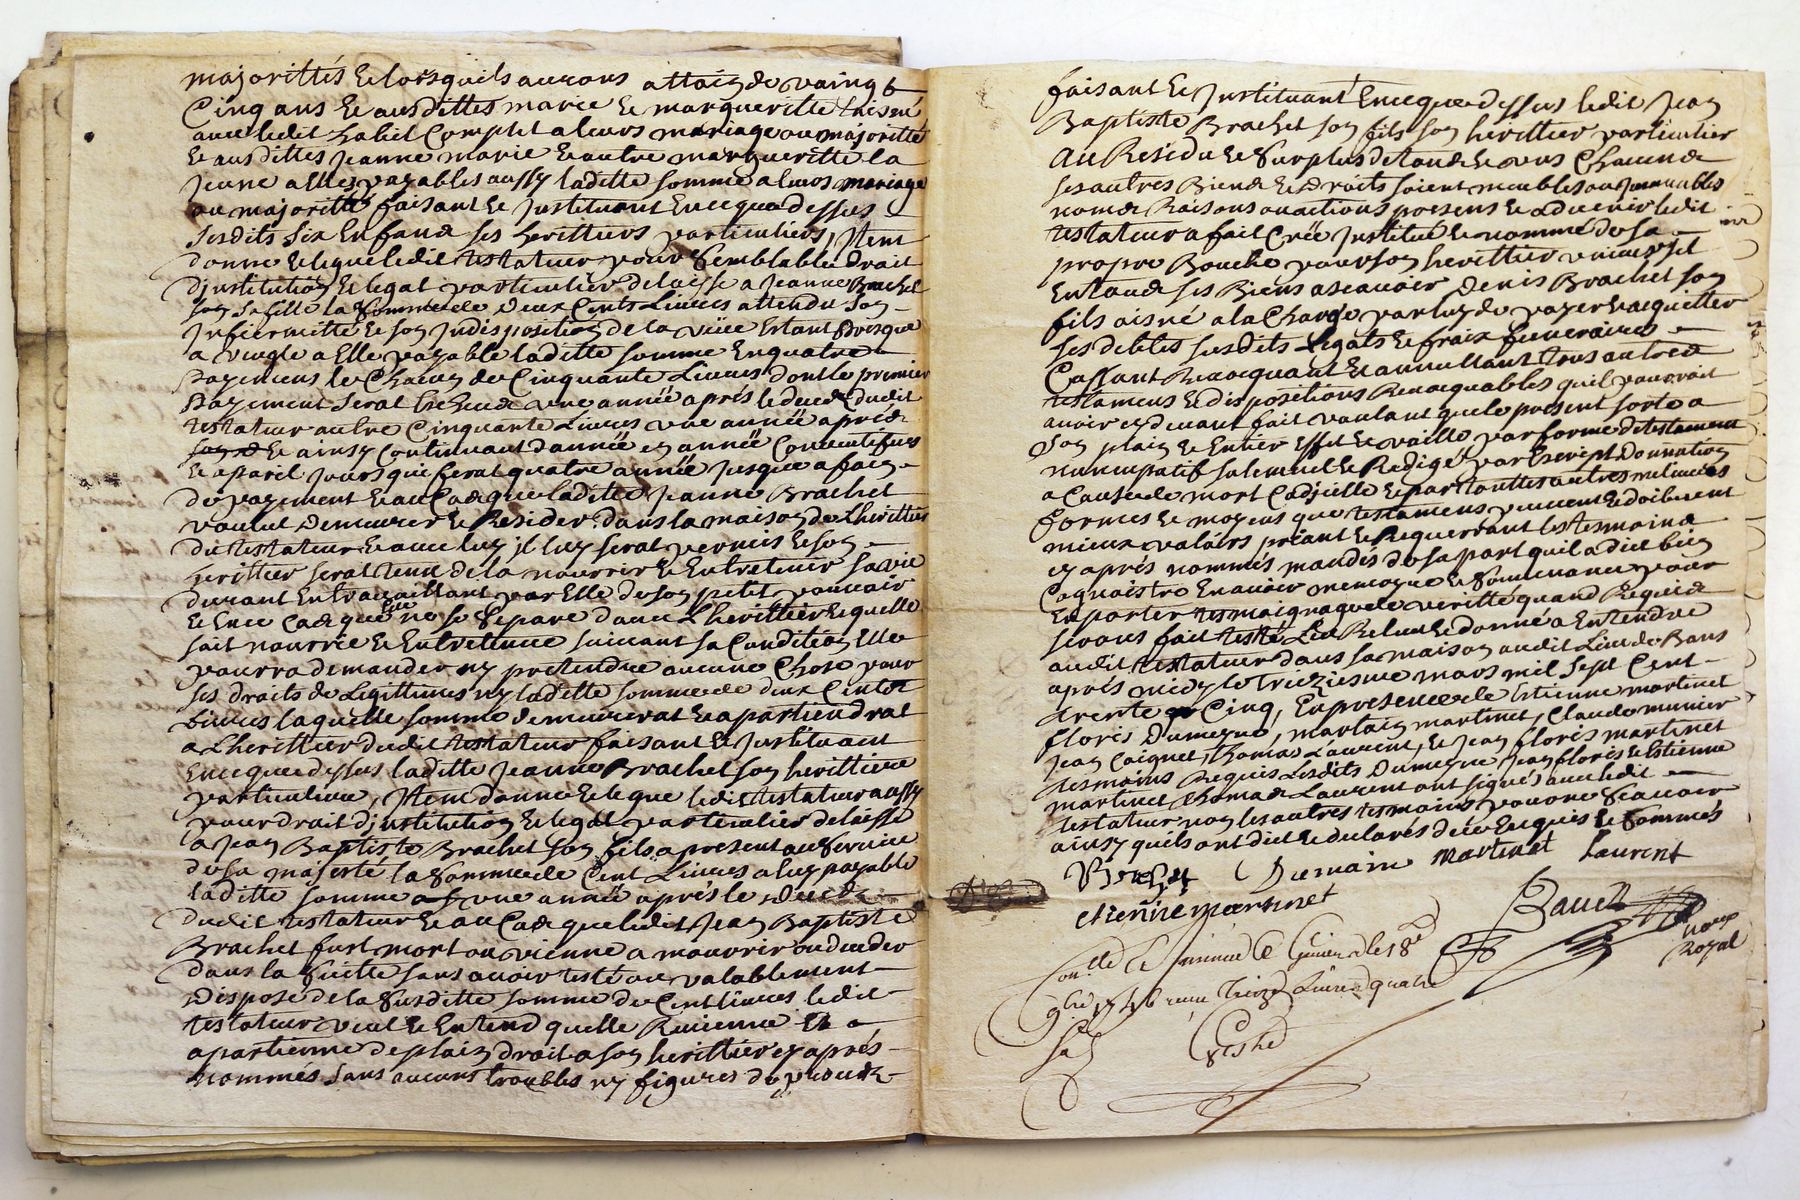 majorittés Et lorsquils aurons attain de vaingt
Cinq ans Et aus dittes marie Et margueritte laisné
avec ledit habit Complet a leurs mariage ou majoritté
Et aus dittes Jeanne marie Et autre margueritte la
Jeune a Elles payables aussy laditte somme a leurs mariage
ou majoritté faisant Et Jnstituant En ce que dessus
sesdits six Enfans ses herittiers particuliers, Jtem
donne Et legue ledit testateur pour semblable droit
d'jnstitution Et legat particulier delaisse a Jeanne Brachet
son sa fille la somme de Deux Cents Livres attendu son
Jnfiermitté Et son Jndisposition de la vüee Estant presque
aveugle a Elle payable laditte somme En quatre
payemens de Chacun de Cinquante Livres dont le premier
payement serat une année aprés le deces dudit
testateur autre Cinquante Livres une année apres
Et ainsy Continuant d'année en année Consecutifves
Et a pareil Jours qui ferat quatre année Jusque a fain
de payement Et au Cas que laditte Jeanne Brachet
voulut Demeurer Et Resider dans la maison de Lherittier
du testateur Et avec luy il luy serat permis Et son
herittier serat tenu de la nourrir Et Entretenir sa vie
durant En travaillant par Elle de son petit pouvoir
Et En ce Cas que Elle ne se separe d'avec Lherittier Et quelle
soit nourrie Et Entretenue suivant sa Condition Elle
pourra demander ny pretendre aucune Chose pour
ses droits de Legittimes ny laditte somme de deux Cents
Livres laquelle somme demeurerat Et apartiendrat
a Lherittier dudit testateur faisant Et Jnstituant
En ce que dessus laditte Jeanne Brachet son herittiere
particuliere, Jtem donne Et legue ledit testateur aussy
pour droit d'jnstitution Et legat particulier delaisse
a Jean Baptiste Brachet son fils a present au service
de sa majesté la somme de Cent Livres a luy payable
laditte somme une année aprés le Deces
dudit testateur Et au Cas que ledit Jean Baptiste
Brachet fust mort ou vienne a mourrir au dela
dans la suitte sans avoir testé ou valablement
Disposé de la susditte somme de Cent Livres ledit
testateur veut Et Entend quelle Revienne Et
apartienne de plain droit a son herittier cy aprés
nommés sans aucuns troubles ny figures de procés
faisant Et Jnstituant En ce que dessus ledit Jean
Baptiste Brachet son fils son herittier particulier
Au Residu Et surplus de tous Et uns Chacuns
ses autres Biens Et droits soient meubles ou Jmmeubles
noms Raisons ou actions presens Et advenir ledit
testateur a fait Crée Jnstitué Et nommé de sa
propre Bouche pour son herittier universel
En tous ses Biens a scavoir Denis Brachet son
fils aisné a la Charge par luy de payer Et acquitter
ses debtes susdits Legats Et fraix funeraires
Cassant Revocquant Et annullant tous autres
testamens Et dispositions Revocquables quil pourroit
avoir cy devant fait voulant que le present sorte a
son plain Et Entier Effet Et vaille par forme de testament
nuncupatif solemnel Et Redigé par Escript Donnation
a Cause de mort Codicille Et par touttes autres meilleures
formes Et moyens que testamens peuvent Et doibvent
mieux valoirs priant Et Requerrant les tesmoins
cy aprés nommés mandés de sa part quil a dit bien
Cognoistre En avoir memoyre Et souvenance pour
En porter tesmoignage de verité quand Requis
serons fait testé Leu Releu Et donné a Entendre
audit testateur dans sa maison audit Lieu de Bons
aprés midy le treiziesme mars mil sept Cent
trente Cinq, En presence de Estienne martinet
florés Dumegne, martain martinet, Claude munier
Jean Coignet, Thomas Laurent, Et Jean florés martinet
tesmoins Requis Lesdits Dumegne Jean florés Et Estienne
martinet Thomas Laurent ont signés avec ledit
testateur non les autres tesmoins pour ne scavoir
ainsy quils ont dict Et declarés de ce Enquis Et sommés
Brachet Dumaine martinet Laurent
etienne martinet
Bauet
nore
Royal
treize Livres quatre